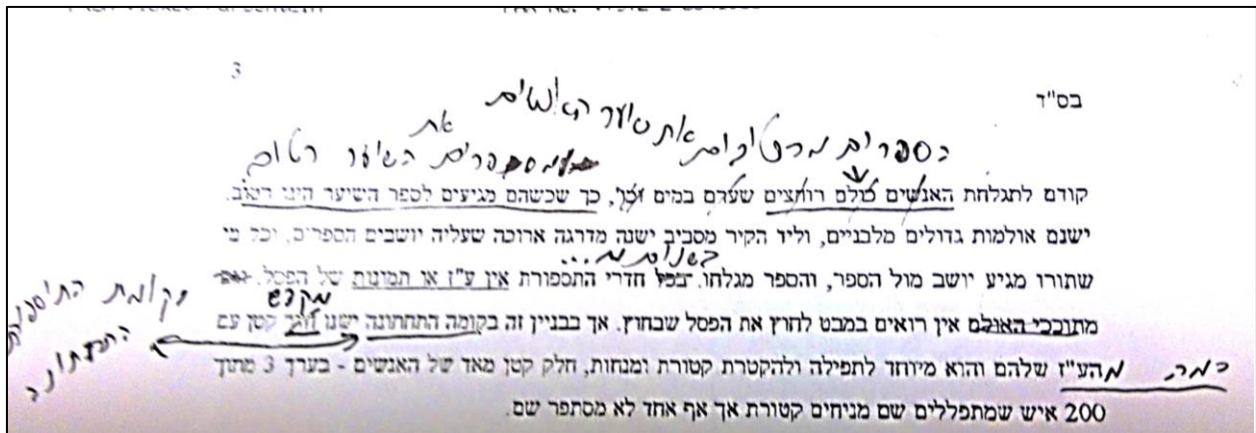 3
בס"ד
הספרים מרטיבים את שיער האנשים
את
השיער רטוב
קודם לתגלחת האנשים כולם רוחצים שערם במים זכן, כך שכשהם מגיעים לספר השיער הינו רטוב.
ישנם אולמות גדולים מלבניים, וליד הקיר מסביב ישנה מדרגה ארוכה שעליה יושבים הספרים, וכל מי
בשנים
שתורו מגיע יושב מול הספר, והספר מגלחו. בכל חדרי התספורת אין ע"ז או תמונות של הפסל. וגם
מקדש
מתוככי האולם אין רואים במבט לחוץ את הפסל שבחוץ. אך בבניין זה בקומה התחתונה ישנו חדר קטן עם
בקומת התיספורת התחתונה
כמה מהע"ז שלהם והוא מיוחד לתפילה ולהקטרת קטורת ומנחות, חלק קטן מאד של האנשים - בערך 3 מתוך
200 איש שמתפללים שם מניחים קטורת אך אף אחד לא מסתפר שם.